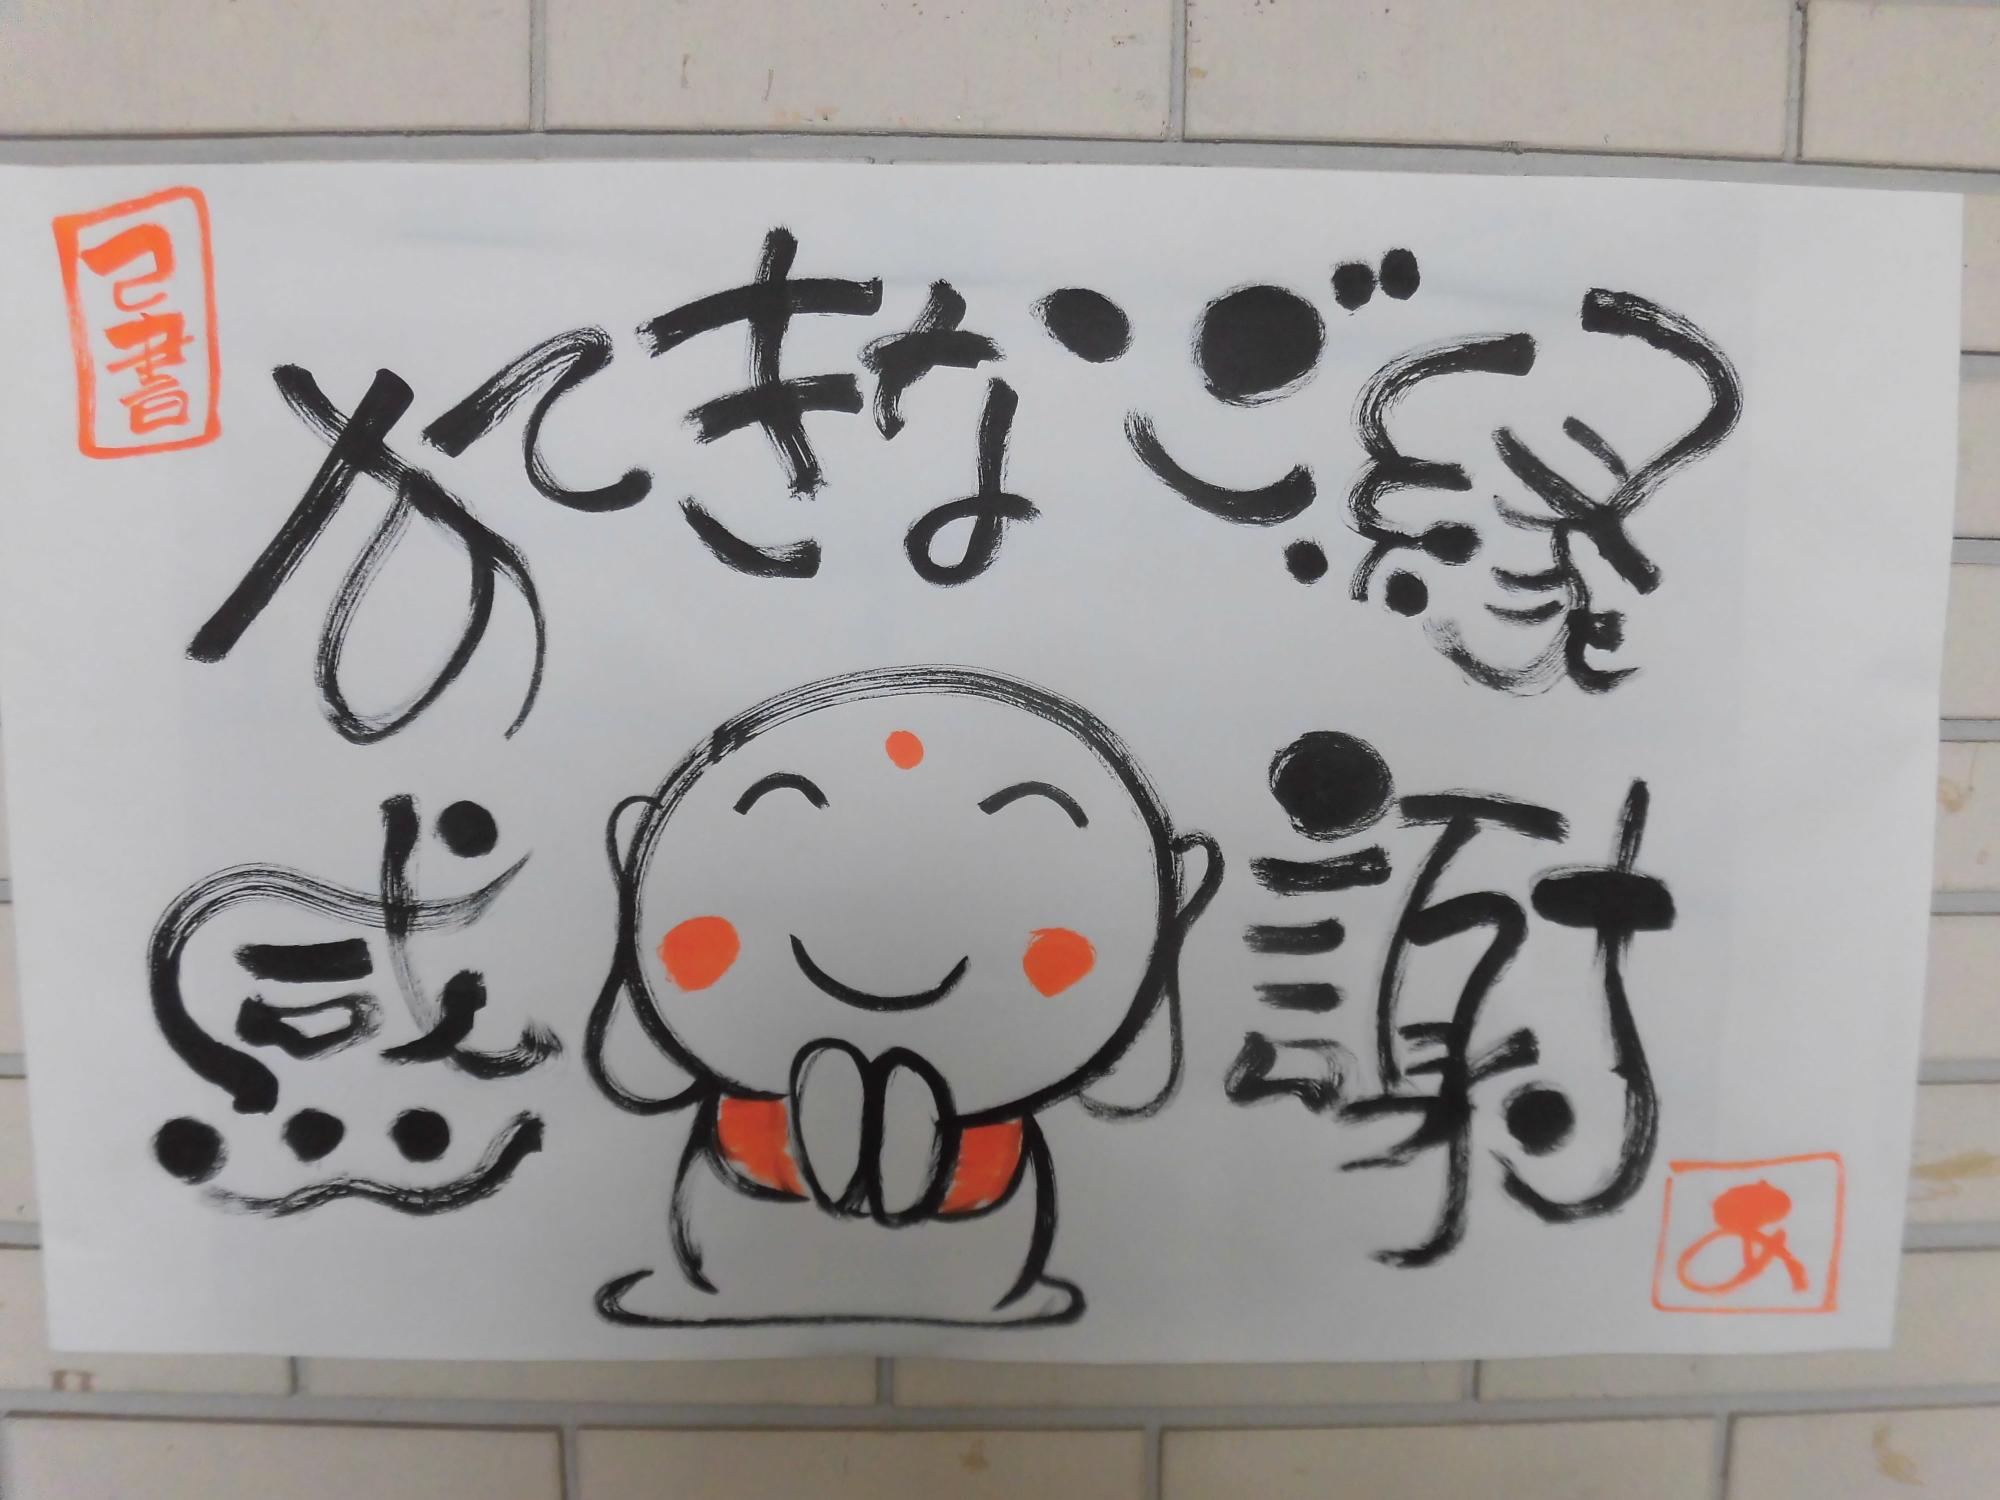 己書
すてきなご縁に
感謝
あ